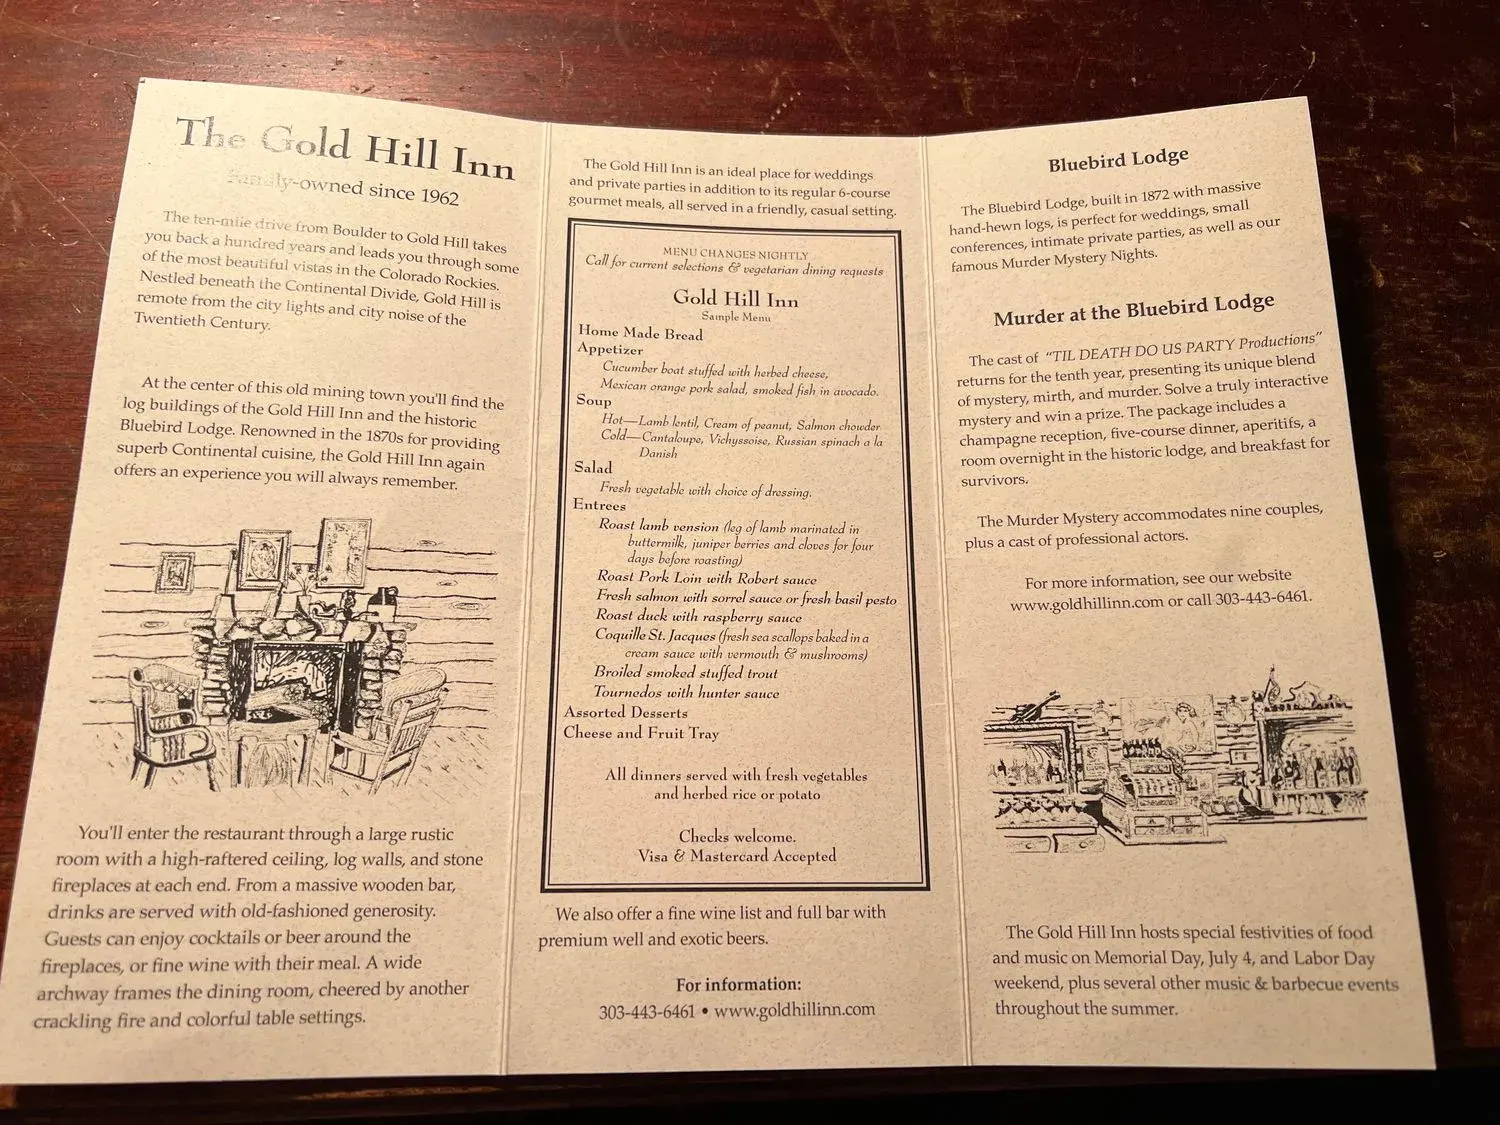 The Gold Hill Inn
Family-owned since 1962
The ten-mile drive from Boulder to Gold Hill takes
you back a hundred years and leads you through some
of the most beautiful vistas in the Colorado Rockies.
Nestled beneath the Continental Divide, Gold Hill is
remote from the city lights and city noise of the
Twentieth Century.
At the center of this old mining town you'll find the
log buildings of the Gold Hill Inn and the historic
Bluebird Lodge. Renowned in the 1870s for providing
superb Continental cuisine, the Gold Hill Inn again
offers an experience you will always remember.
You'll enter the restaurant through a large rustic
room with a high-raftered ceiling, log walls, and stone
fireplaces at each end. From a massive wooden bar,
drinks are served with old-fashioned generosity.
Guests can enjoy cocktails or beer around the
fireplaces, or fine wine with their meal. A wide
archway frames the dining room, cheered by another
crackling fire and colorful table settings.
The Gold Hill Inn is an ideal place for weddings
and private parties in addition to its regular 6-course
gourmet meals, all served in a friendly, casual setting.
MENU CHANGES NIGHTLY
Call for current selections & vegetarian dining requests
Gold Hill Inn
Sample Menu
Home Made Bread
Appetizer
Cucumber boat stuffed with herbed cheese,
Mexican orange pork salad, smoked fish in avocado.
Soup
Hot—Lamb lentil, Cream of peanut, Salmon chowder
Cold—Cantaloupe, Vichyssoise, Russian spinach a la
Danish
Salad
Fresh vegetable with choice of dressing.
Entrees
Roast lamb vension (leg of lamb marinated in
buttermilk, juniper berries and cloves for four
days before roasting)
Roast Pork Loin with Robert sauce
Fresh salmon with sorrel sauce or fresh basil pesto
Roast duck with raspberry sauce
Coquille St. Jacques (fresh sea scallops baked in a
cream sauce with vermouth & mushrooms)
Broiled smoked stuffed trout
Tournedos with hunter sauce
Assorted Desserts
Cheese and Fruit Tray
All dinners served with fresh vegetables
and herbed rice or potato
Checks welcome.
Visa & Mastercard Accepted
We also offer a fine wine list and full bar with
premium well and exotic beers.
For information:
303-443-6461 • www.goldhillinn.com
Bluebird Lodge
The Bluebird Lodge, built in 1872 with massive
hand-hewn logs, is perfect for weddings, small
conferences, intimate private parties, as well as our
famous Murder Mystery Nights.
Murder at the Bluebird Lodge
The cast of "TIL DEATH DO US PARTY Productions"
returns for the tenth year, presenting its unique blend
of mystery, mirth, and murder. Solve a truly interactive
mystery and win a prize. The package includes a
champagne reception, five-course dinner, aperitifs, a
room overnight in the historic lodge, and breakfast for
survivors.
The Murder Mystery accommodates nine couples,
plus a cast of professional actors.
For more information, see our website
www.goldhillinn.com or call 303-443-6461.
The Gold Hill Inn hosts special festivities of food
and music on Memorial Day, July 4, and Labor Day
weekend, plus several other music & barbecue events
throughout the summer.